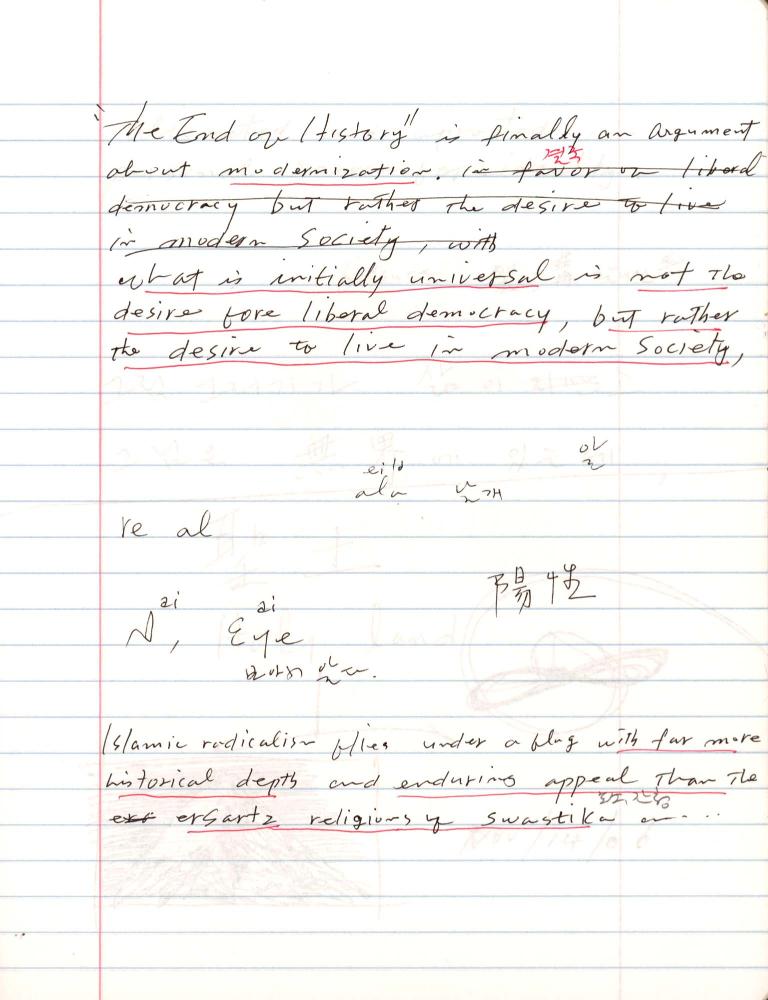 "The End of History" is finally an argument
결국
about modernization. in favor of liberal
democracy but rather the desire to live
in modern society, with
what is initially universal is not the
desire fore liberal democracy, but rather
the desire to live in modern Society,
알
eild
ala 날개
re al
陽性
ai ai
Eye
보아서 알다.
Islamic radicalism flies under a flag with far more
historical depth and enduring appeal than the
ersartz religions of swastika or...